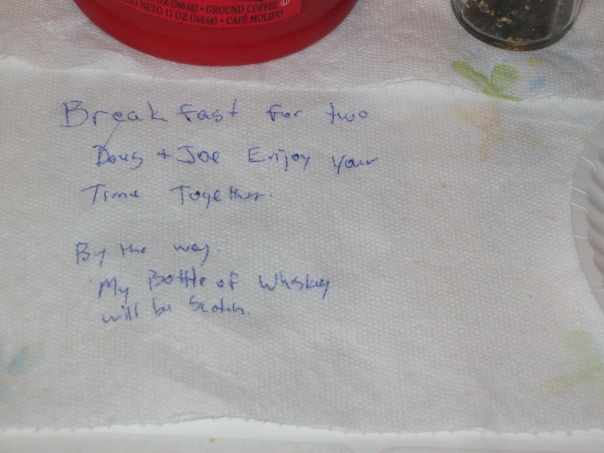 OZ (368.6g) • GROUND COFFEE
NETO 13 OZ (368.6g) • CAFÉ MOLIDO
Breakfast for two
Doug + Joe Enjoy your
Time Together.
By the way.
My Bottle of Whiskey
will be Scotch.